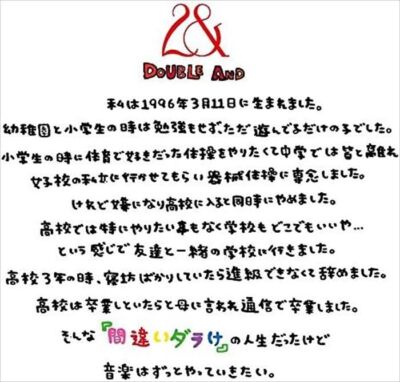 2&
DOUBLE AND
私は1996年3月11日に生まれました。
幼稚園と小学生の時は勉強もせずただ遊んでるだけの子でした。
小学生の時に体育で好きだった体操をやりたくて中学では皆と離れ
女子校の私立に行かせてもらい器械体操に専念しました。
けれど嫌になり高校に入ると同時にやめました。
高校では特にやりたい事もなく学校もどこでもいいや...
という感じで友達と一緒の学校に行きました。
高校3年の時、寝坊ばかりしていたら進級できなくて辞めました。
高校は卒業しといたらと母に言われ通信で卒業しました。
そんな『間違いダラけ』の人生だったけど
音楽はずっとやっていきたい。